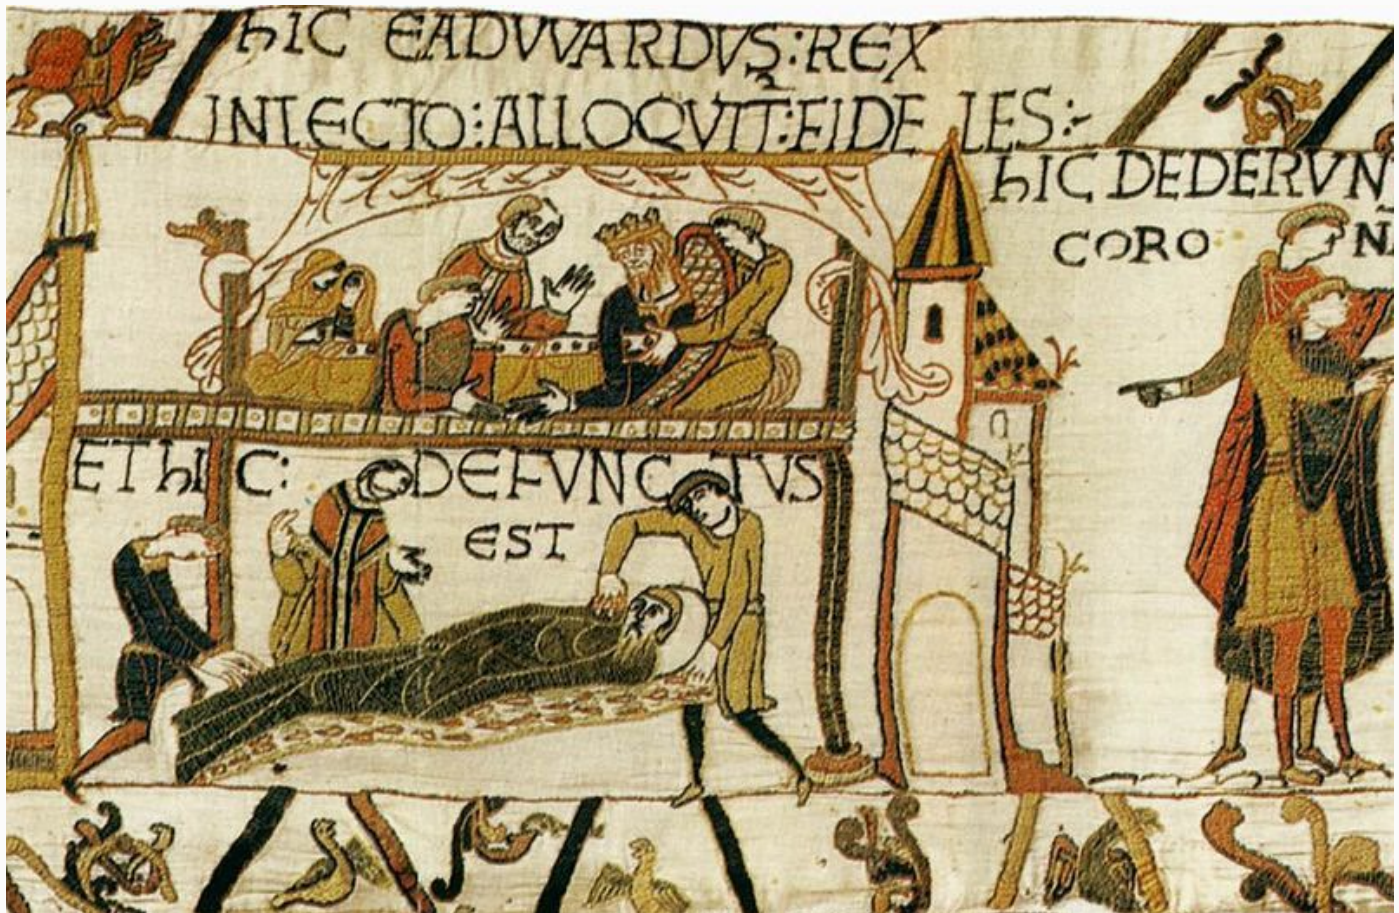 hIC EADVVARDVS:REX
INLECTO:ALLOQVIT:FIDE LES:-
hIC DEDERVN
CORO N̄
ET hI C: DEFVNC TVS
EST